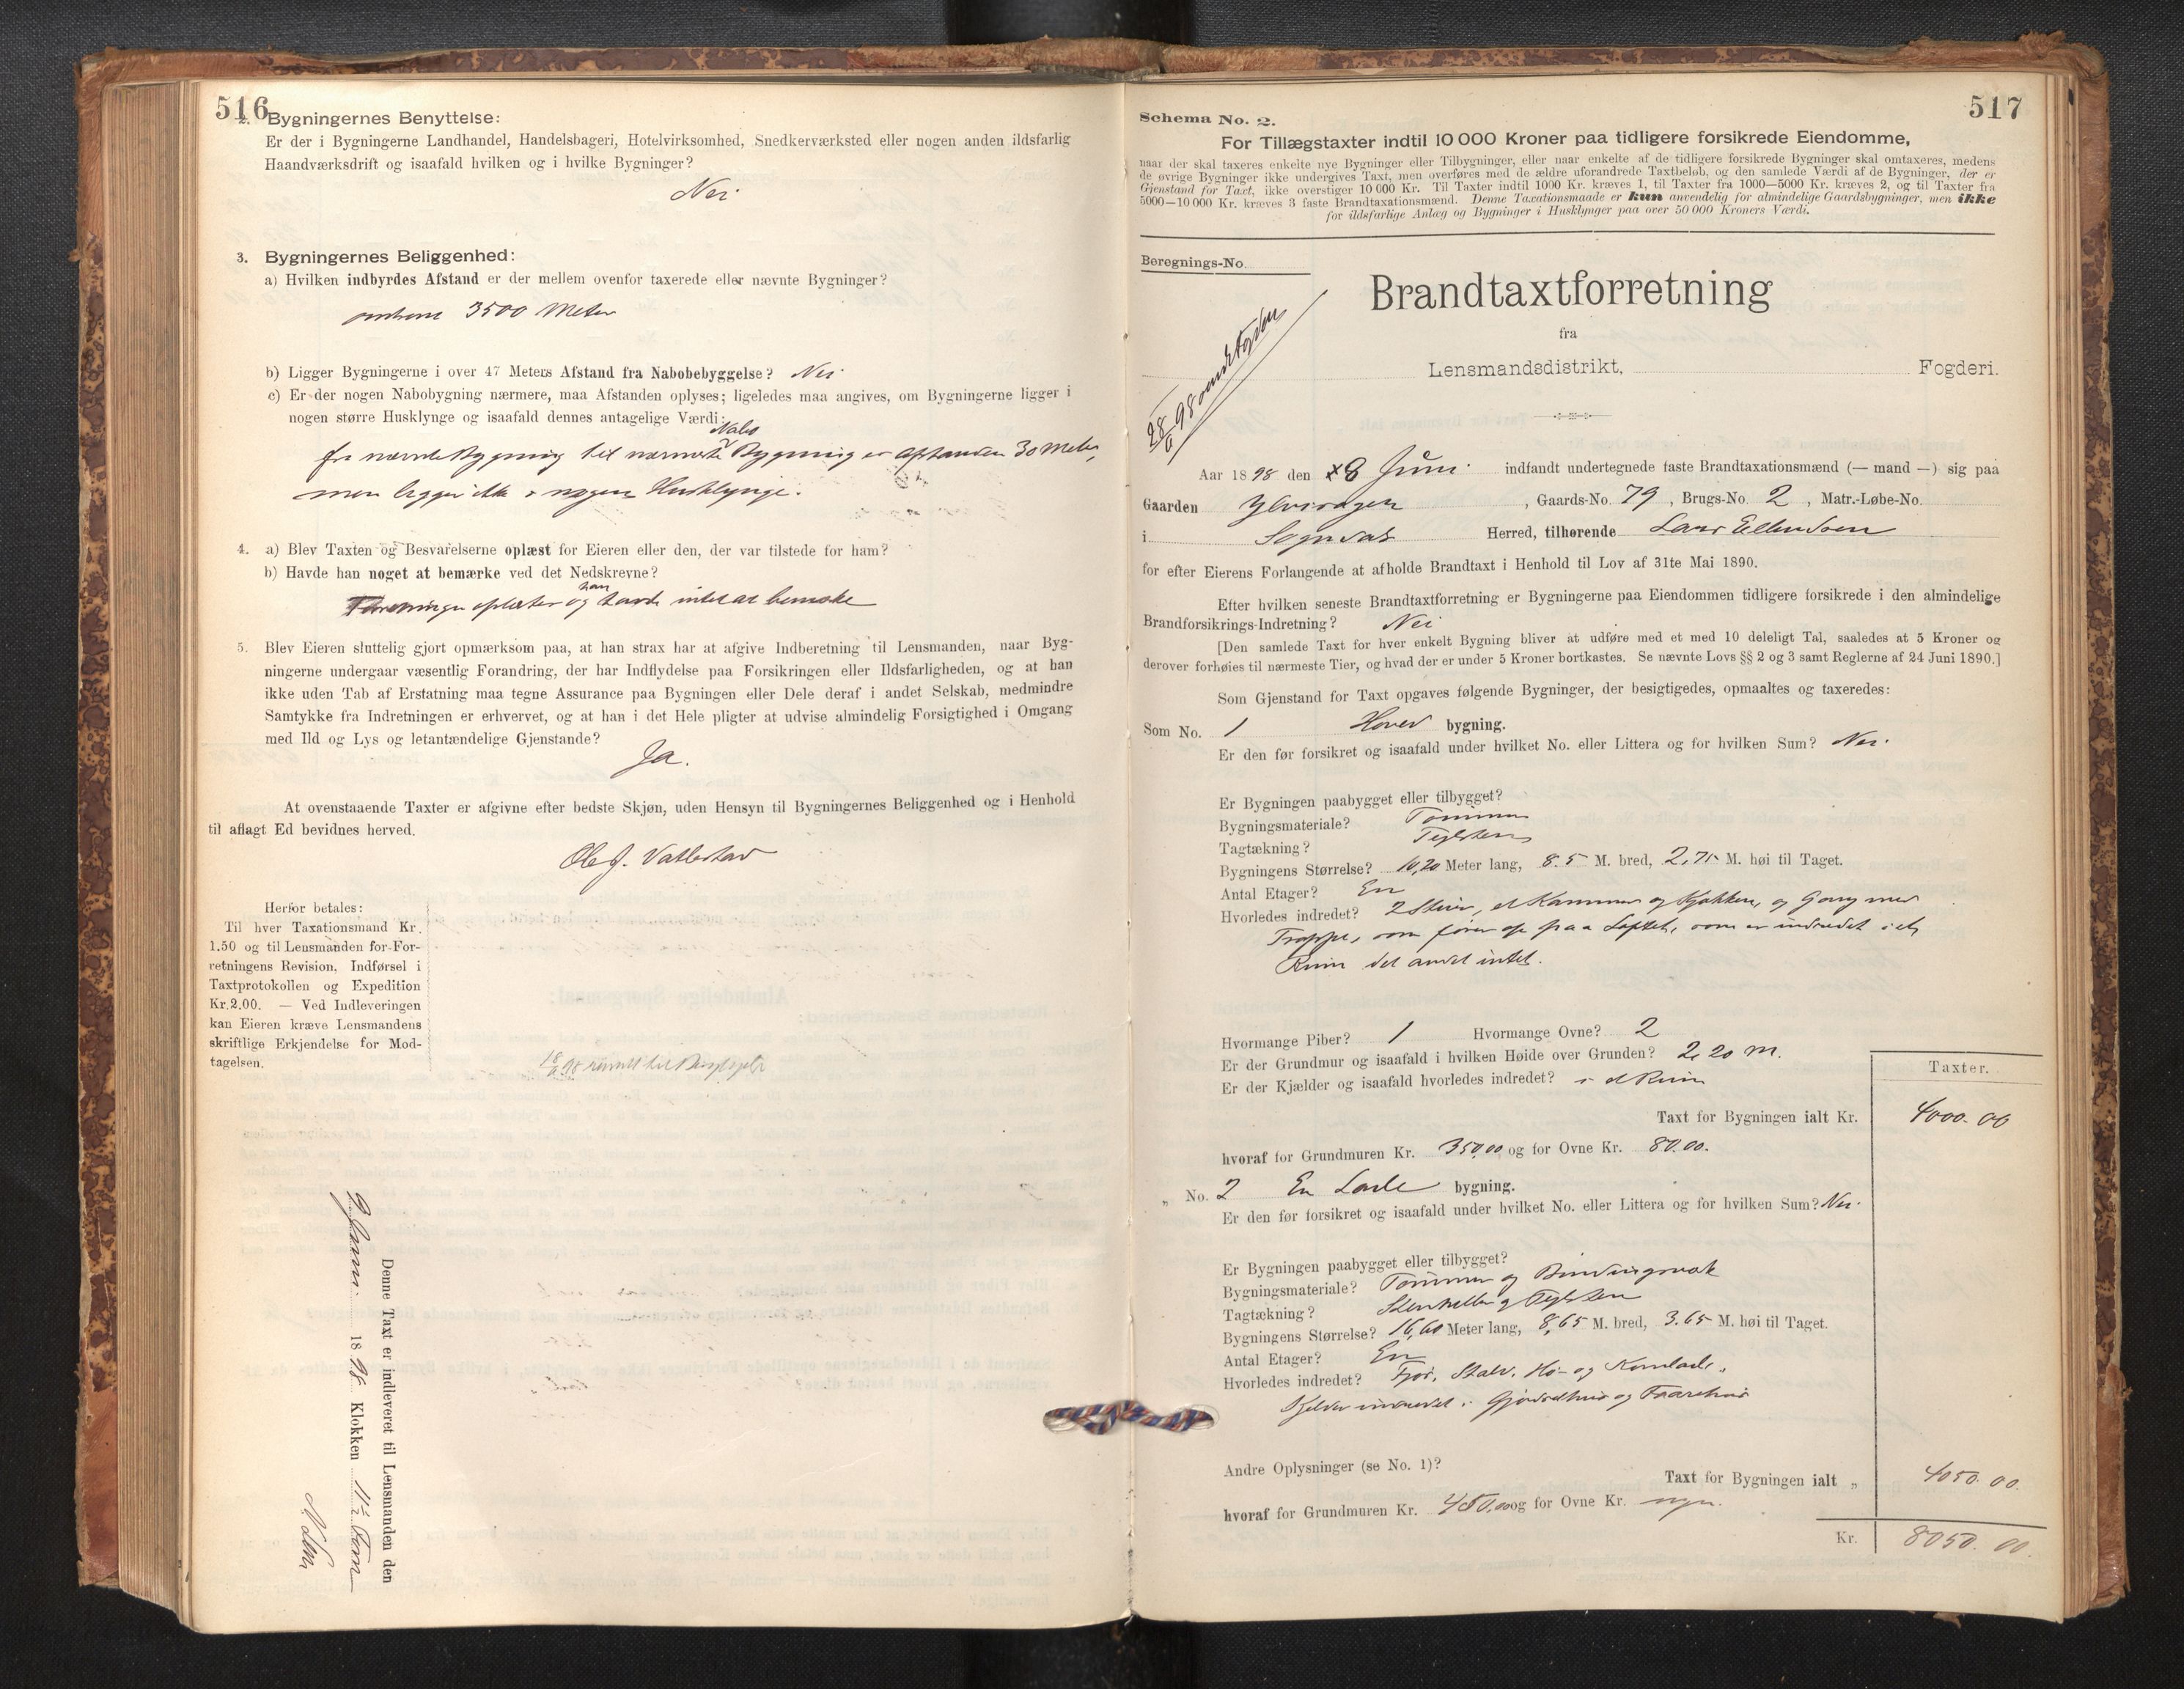 516
2. Bygningernes Benyttelse:
Er der i Bygningerne Landhandel, Handelsbageri, Hotelvirksomhed, Snedkerværksted eller nogen anden ildsfarlig
Haandværksdrift og isaafald hvilken og i hvilke Bygninger?
Nei
3. Bygningernes Beliggenhed:
a) Hvilken indbyrdes Afstand er der mellem ovenfor taxerede eller nævnte Bygninger?
omtrent 3500 Meter
b) Ligger Bygningerne i over 47 Meters Afstand fra Nabobebyggelse? Nei
c) Er der nogen Nabobygning nærmere, maa Afstanden oplyses; ligeledes maa angives, om Bygningerne ligger i
nogen større Husklynge og isaafald dennes antagelige Værdi:
Nabo
fra nævnte Bygning til nærmeste Bygning er Afstanden 30 Meter,
men ligger ikke i nogen Husklynge.
4. a) Blev Taxten og Besvarelserne oplæst for Eieren eller den, der var tilstede for ham?
b) Havde han noget at bemærke ved det Nedskrevne?
han
Forretningen oplæstes og havde intet at bemærke
5. Blev Eieren sluttelig gjort opmærksom paa, at han strax har at afgive Indberetning til Lensmanden, naar Byg-
ningerne undergaar væsentlig Forandring, der har Indflydelse paa Forsikringen eller Ildsfarligheden, og at han
ikke uden Tab af Erstatning maa tegne Assurance paa Bygningen eller Dele deraf i andet Selskab, medmindre
Samtykke fra Indretningen er erhvervet, og at han i det Hele pligter at udvise almindelig Forsigtighed i Omgang
med Ild og Lys og letantændelige Gjenstande?
Ja.
At ovenstaaende Taxter er afgivne efter bedste Skjøn, uden Hensyn til Bygningernes Beliggenhed og i Henhold
til aflagt Ed bevidnes herved.
Ole J. Vatlestad
Herfor betales:
Til hver Taxationsmand Kr.
1.50 og til Lensmanden for For-
retningens Revision, Indførsel i
Taxtprotokollen og Expedition
Kr. 2.00. — Ved Indleveringen
kan Eieren kræve Lensmandens
skriftlige Erkjendelse for Mod-
tagelsen.
Denne Taxt er indleveret til Lensmanden den
9 Juni 1898 Klokken 11 1/2 Form
517
Schema No. 2.
For Tillægstaxter indtil 10 000 Kroner paa tidligere forsikrede Eiendomme,
naar der skal taxeres enkelte nye Bygninger eller Tilbygninger, eller naar enkelte af de tidligere forsikrede Bygninger skal omtaxeres, medens
de øvrige Bygninger ikke undergives Taxt, men overføres med de ældre uforandrede Taxtbeløb, og den samlede Værdi af de Bygninger, der er
Gjenstand for Taxt, ikke overstiger 10 000 Kr. Til Taxter indtil 1000 Kr. kræves 1, til Taxter fra 1000—5000 Kr. kræves 2, og til Taxter fra
5000—10 000 Kr. kræves 3 faste Brandtaxationsmænd. Denne Taxationsmaade er kun anvendelig for almindelige Gaardsbygninger, men ikke
for ildsfarlige Anlæg og Bygninger i Husklynger paa over 50 000 Kroners Værdi.
Beregnings-No.
Brandtaxtforretning
fra
Lensmandsdistrikt, Fogderi.
Aar 1898 den 8 Juni indfandt undertegnede faste Brandtaxationsmænd (— mand —) sig paa
Gaarden Ylvisagen, Gaards-No. 79, Brugs-No. 2, Matr.-Løbe-No.
i Sogndal Herred, tilhørende Lars Ellendsen
for efter Eierens Forlangende at afholde Brandtaxt i Henhold til Lov af 31te Mai 1890.
Efter hvilken seneste Brandtaxtforretning er Bygningerne paa Eiendommen tidligere forsikrede i den almindelige
Brandforsikrings-Indretning? Nei
[Den samlede Taxt for hver enkelt Bygning bliver at udføre med et med 10 deleligt Tal, saaledes at 5 Kroner og
derover forhøies til nærmeste Tier, og hvad der er under 5 Kroner bortkastes. Se nævnte Lovs §§ 2 og 3 samt Reglerne af 24 Juni 1890.]
Som Gjenstand for Taxt opgaves følgende Bygninger, der besigtigedes, opmaaltes og taxeredes:
Som No. 1 Hoved bygning.
Er den før forsikret og isaafald under hvilket No. eller Littera og for hvilken Sum? Nei.
Er Bygningen paabygget eller tilbygget?
Bygningsmateriale? Tømmer
Tagtækning? Teglsten
Bygningens Størrelse? 10,20 Meter lang, 8.5 M. bred, 2,75 M. høi til Taget.
Antal Etager? En
Hvorledes indredet? 2 Stuer, et Kammer og Kjøkken, og Gang med
Trappe, som fører op paa Loftet, som er indredet i et
Rum det andet intet.
Hvormange Piber? 1 Hvormange Ovne? 2
Er der Grundmur og isaafald i hvilken Høide over Grunden? 2,20 m.
Er der Kjælder og isaafald hvorledes indredet? i et Rum
Taxter.
Taxt for Bygningen ialt Kr. 4000.00
hvoraf for Grundmuren Kr. 350,00 og for Ovne Kr. 80.00.
„ No. 2 En Lade bygning.
Er den før forsikret og isaafald under hvilket No. eller Littera og for hvilken Sum? Nei.
Er Bygningen paabygget eller tilbygget?
Bygningsmateriale? Tømmer og Bindingsværk
Tagtækning? Stenheller og Teglsten
Bygningens Størrelse? 16,60 Meter lang, 8,65 M. bred, 3.65 M. høi til Taget.
Antal Etager? En
Hvorledes indredet? Fjøs, Stald, Hø- og Kornlade,
Kjelder indredet i Gjødselhus og Faarehus
Andre Oplysninger (se No. 1)?
Taxt for Bygningen ialt „ 4050.00.
hvoraf for Grundmuren Kr. 450,00 og for Ovne Kr. ingen.
Kr. 8050.00.